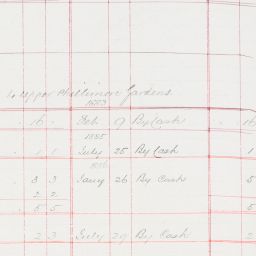 Upper Phillimore Gardens
1883
16 Feb 9 By Cash 16
1885
1 1 July 25 By Cash 1
1886
3 3 Jany 26 By Cash 5
2 2
5 5 5
2 3 July 29 By Cash 2